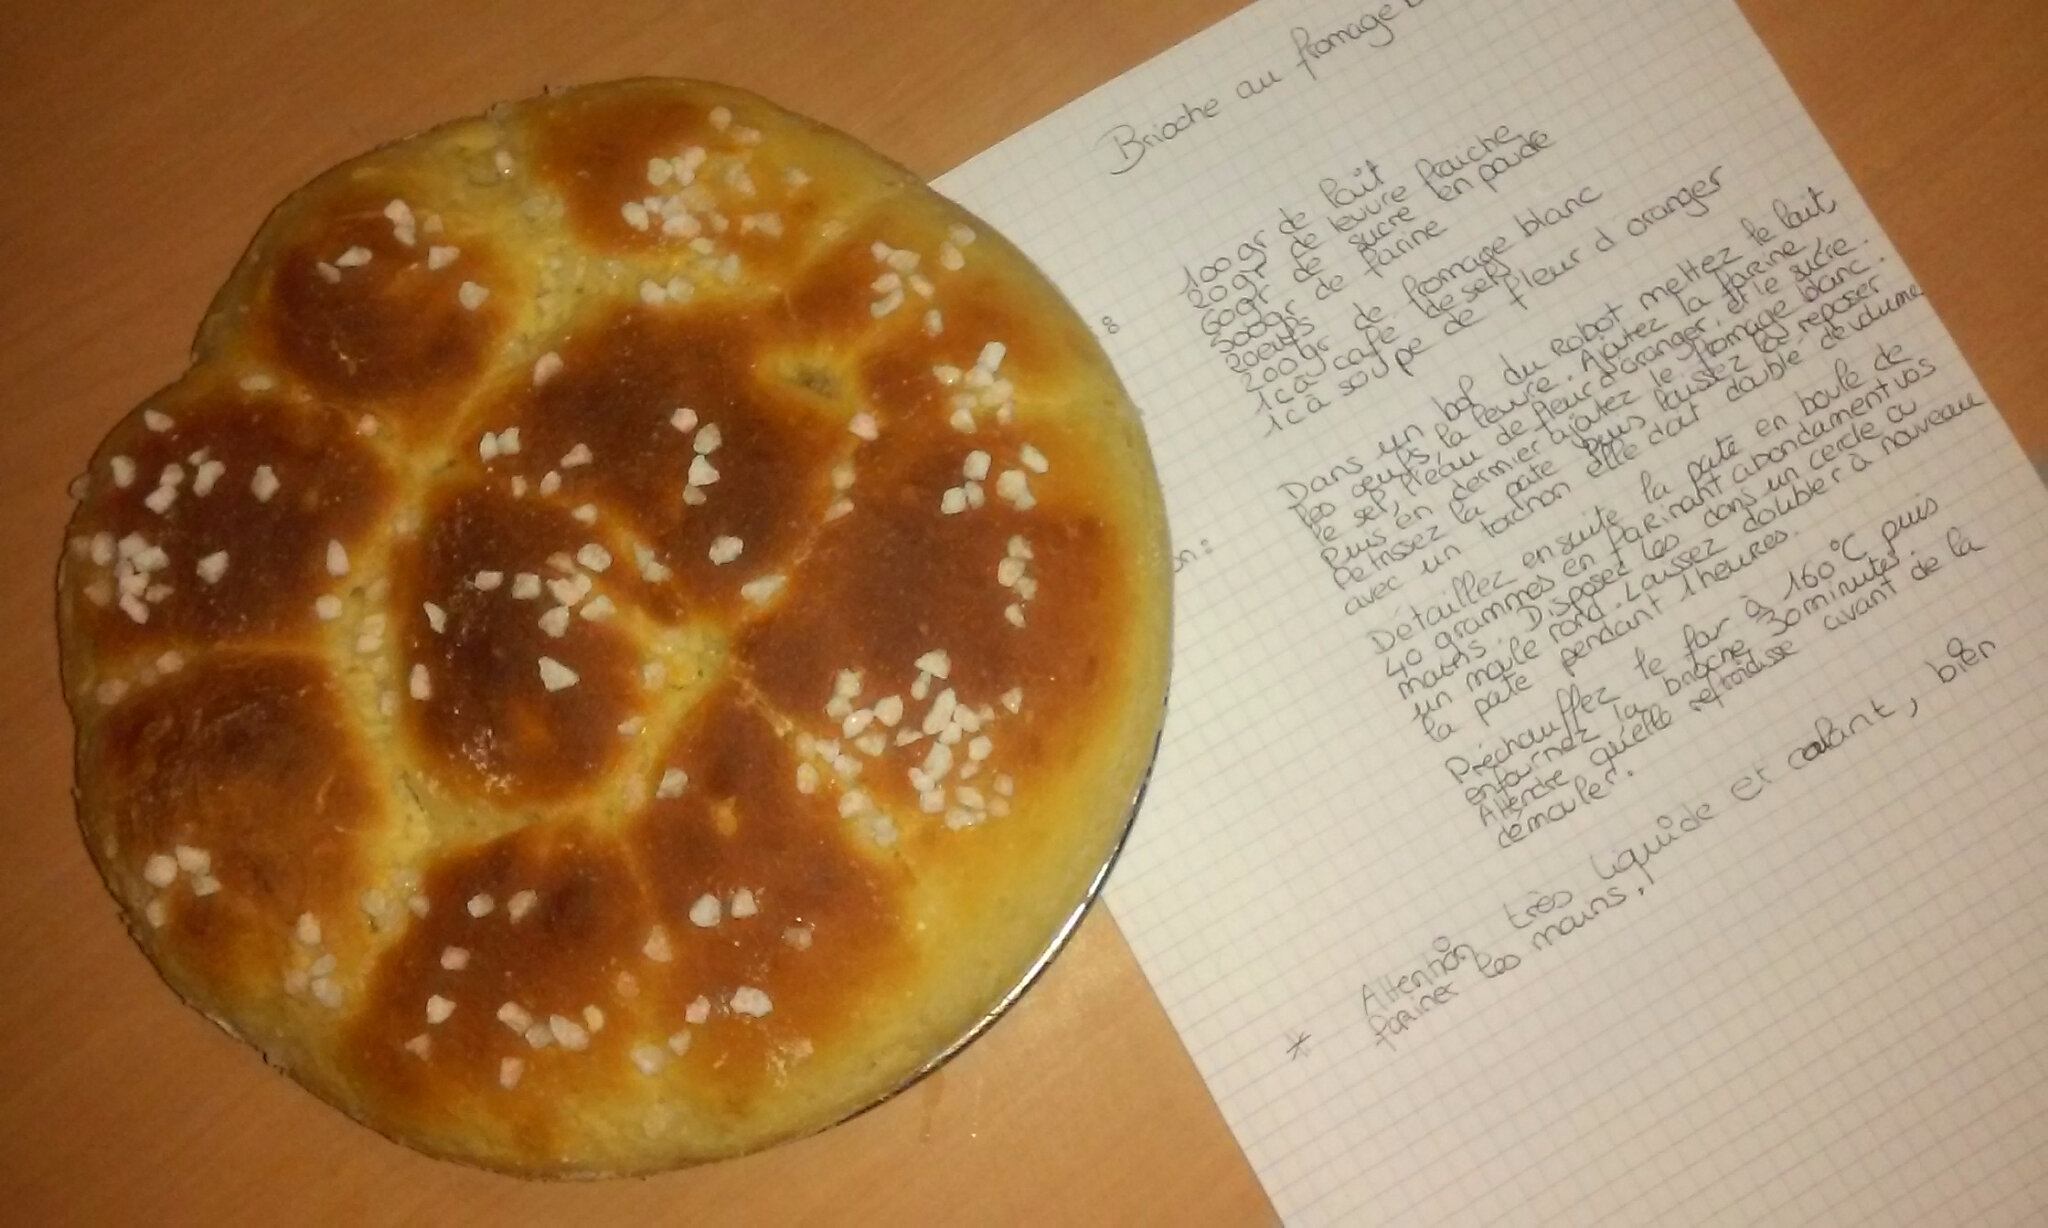 Brioche au fromage
:
100gr de lait
20gr de levure fraiche
60gr de sucre en poudre
500gr de farine
2oeufs
200gr de fromage blanc
1c à café de sel
1c à soupe de fleur d oranger
on:
Dans un bol du Robot mettez le lait
les oeufs, la levure. Ajoutez la farine
le sel, l'eau de fleur d'oranger, et le sucre.
Puis en dernier ajoutez le fromage blanc.
Petrissez la pate puis laissez la reposer
avec un torchon elle doit double de volume
Détaillez ensuite la pate en boule de
40 grammes en farinant abondament vos
mains. Disposez les dans un cercle ou
un moule rond. Laissez doubler à nouveau
la pate pendant 1heures.
Préchauffez le four à 160°C puis
enfournez la brioche 30minutes.
Attendre qu'elle refroidisse avant de la
démouler.
* Attention très liquide et collant, bien
fariner les mains.